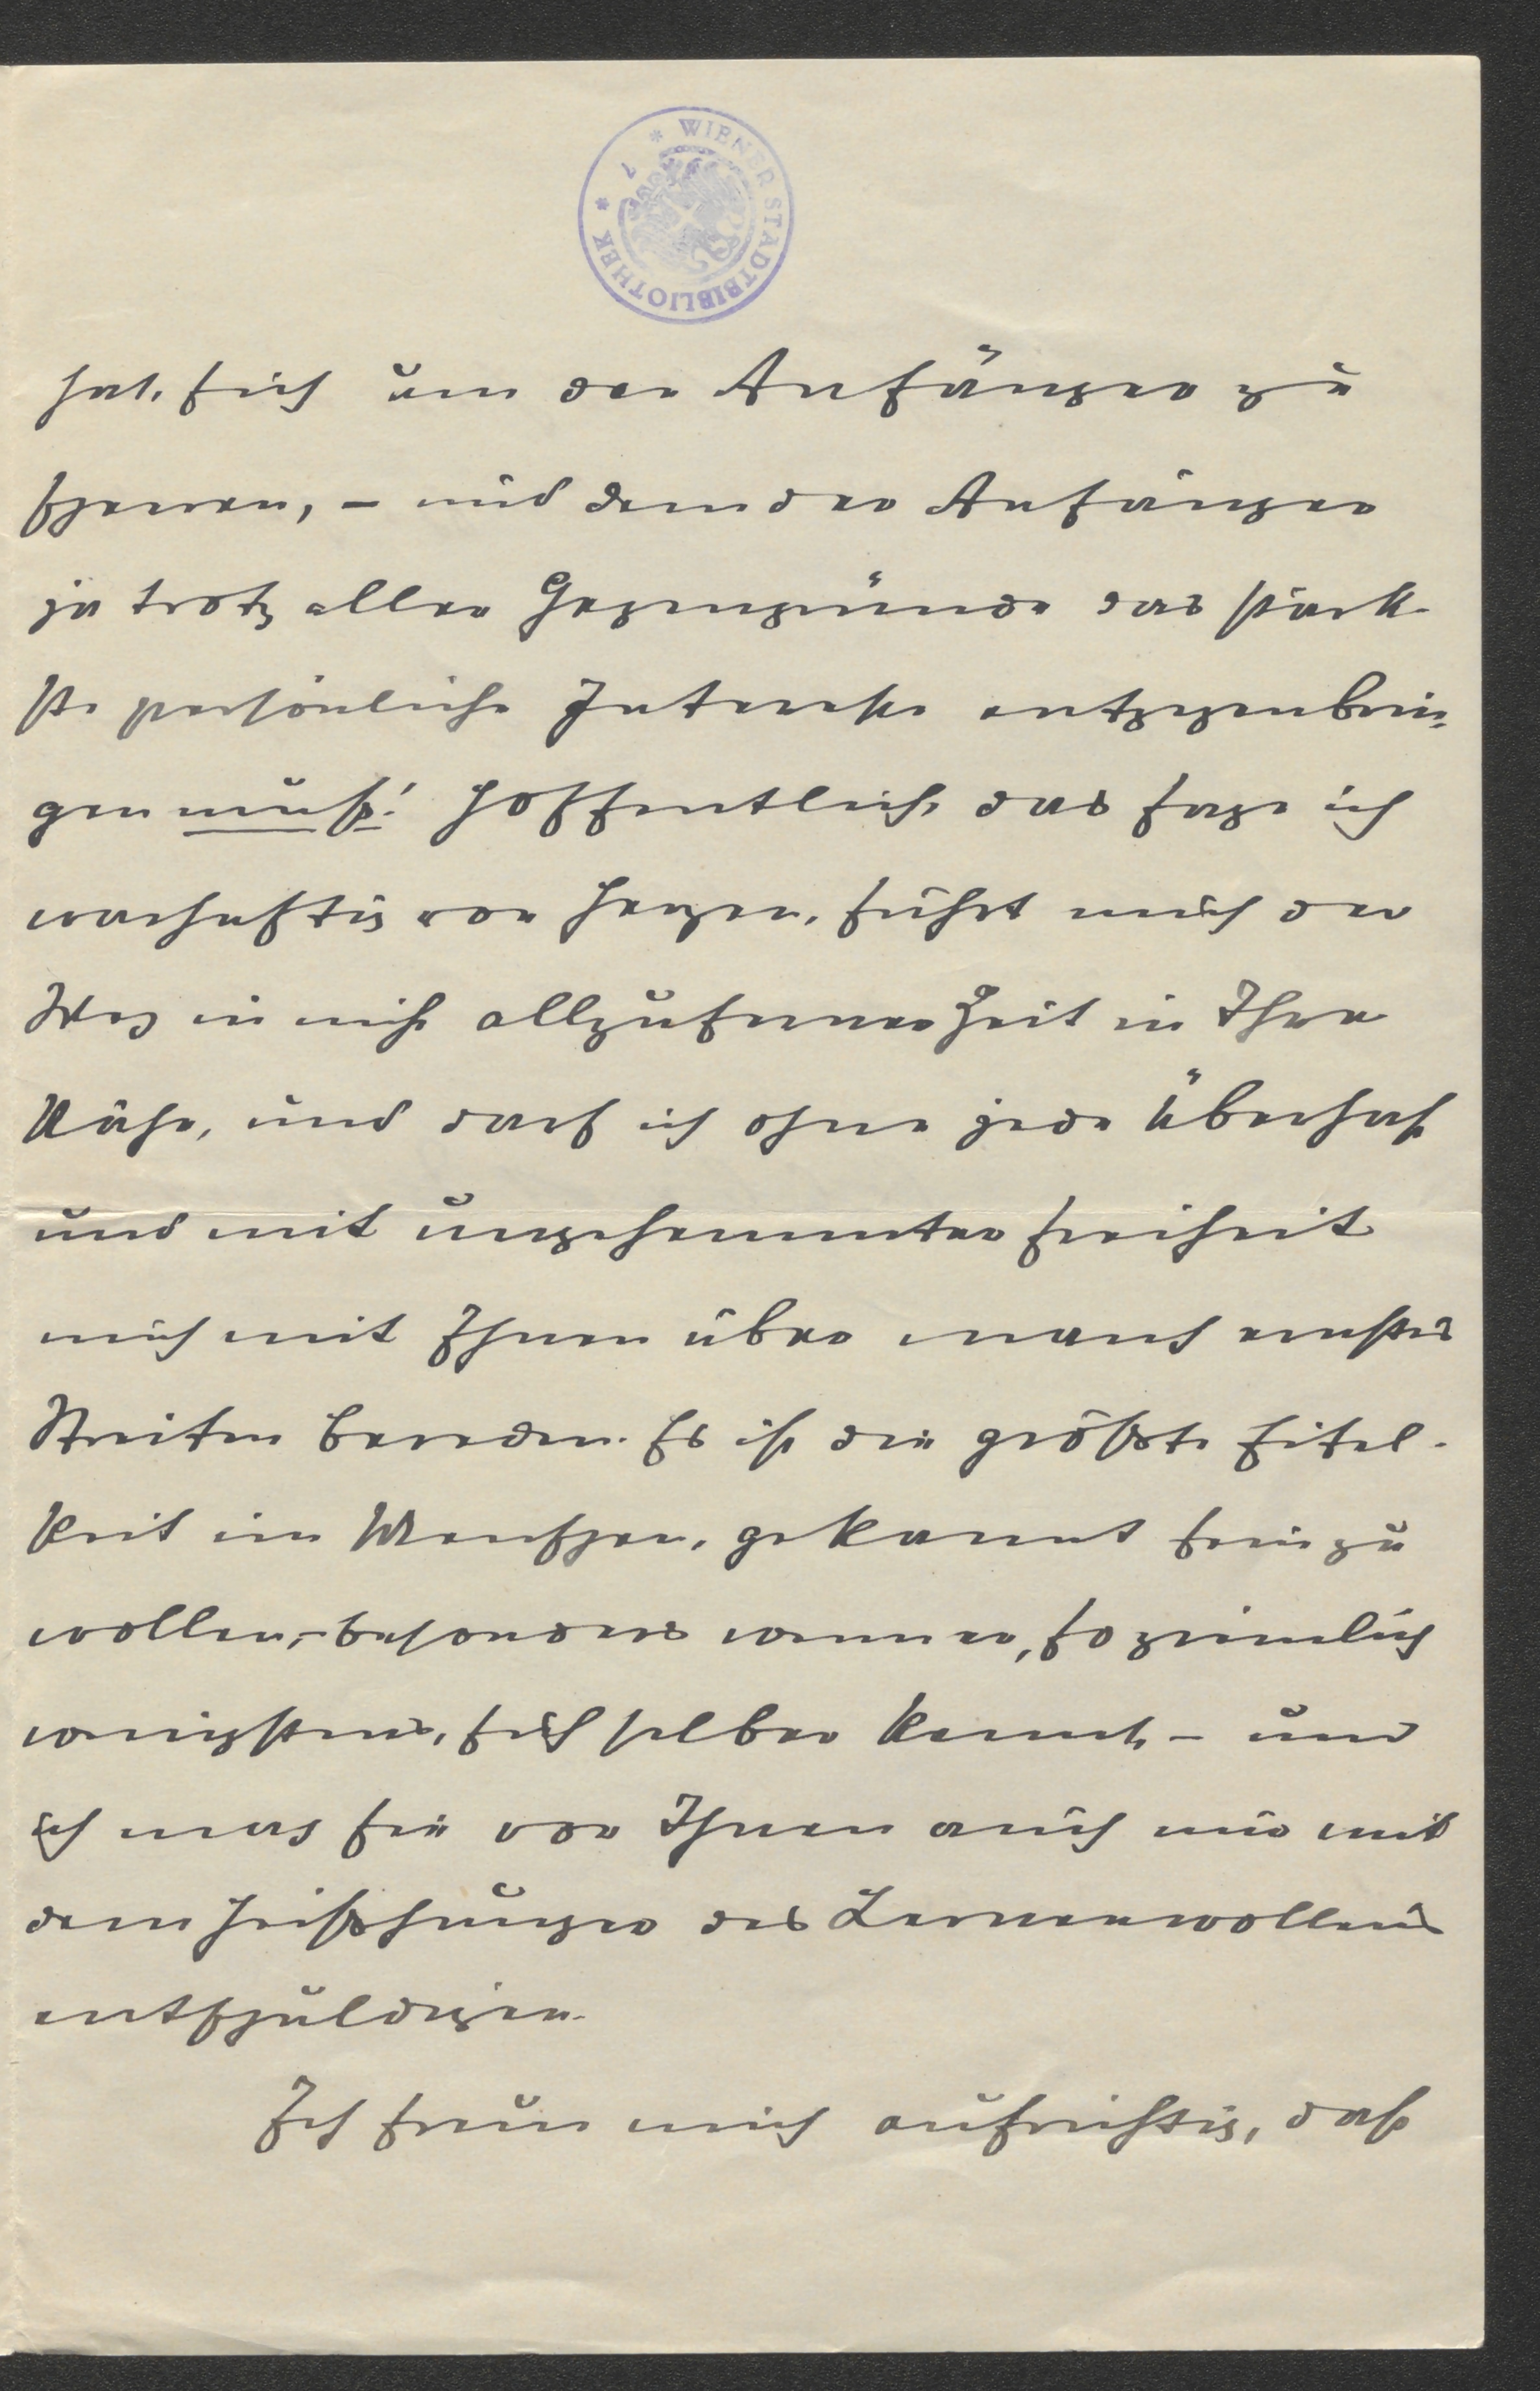 * WIENER STADTBIBLIOTHEK *
hat, sich um den Anfänger zu
scheren, – und dem der Anfänger
ja trotz aller Gegengründe das stärk-
ste persönliche Interesse entgegenbrin-
gen muß! Hoffentlich, das sage ich
warhaftig von Herzen, führt mich der
Weg in nicht allzuferner Zeit in Ihre
Nähe, und darf ich ohne jede Überhast
und mit ungehemmter Freiheit
mich mit Ihnen über manch ernstes
Streiten bereden. Es ist die größte Eitel-
keit im Menschen, gekannt sein zu
wollen, – besonders wenn er, so ziemlich
wenigstens, sich selber kennt, – und
ich mag sie vor Ihnen auch nur mit
dem Heißhunger des Lernenwollens
entschuldigen.
Ich freue mich aufrichtig, daß